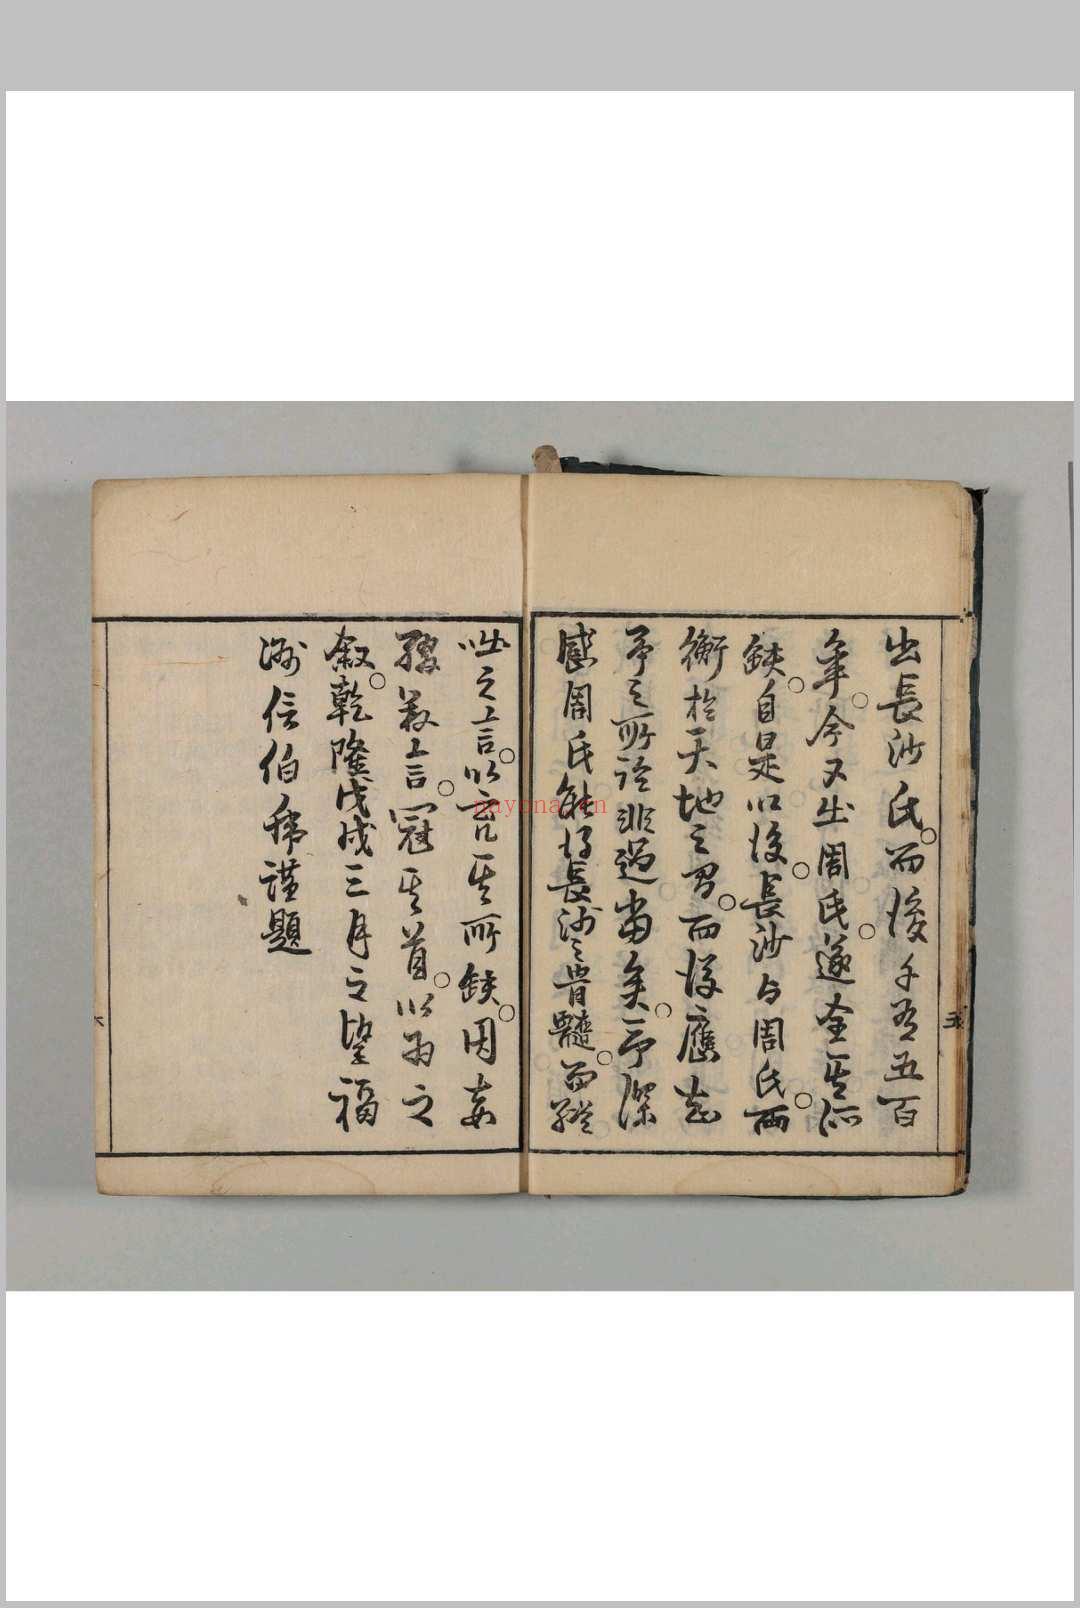 出長沙氏。而後千有五百
年。今又出周氏。遂全其所
缺。自是以後。長沙与周氏。両
衡於天地之間。而後應知
予之所論非過當矣。予深
感周氏能得長沙之骨髓。而
咄之言。以充其所缺。因妄
敘言。冠其首。以為之
敘。乾隆戊戌三月之望福
洲信伯
謹題
五
nayona.cn